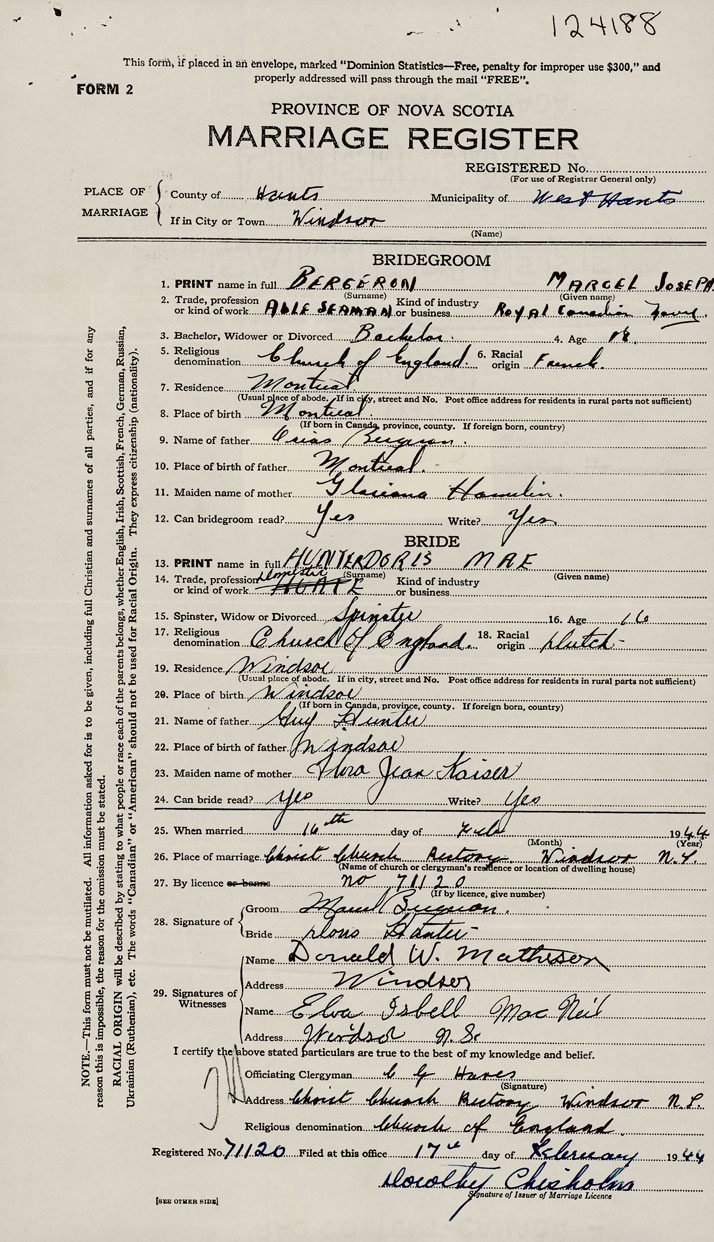 124188
This form, if placed in an envelope, marked "Dominion Statistics—Free, penalty for improper use $300," and
properly addressed will pass through the mail "FREE".
FORM 2
PROVINCE OF NOVA SCOTIA
MARRIAGE REGISTER
REGISTERED No.
(For use of Registrar General only)
PLACE OF MARRIAGE
County of Hants Municipality of West Hants
If in City or Town Windsor
(Name)
BRIDEGROOM
1. PRINT name in full BERGERON MARCEL JOSEPH
(Surname) (Given name)
2. Trade, profession or kind of work ABLE SEAMAN Kind of industry or business Royal Canadian Navy
3. Bachelor, Widower or Divorced Bachelor. 4. Age 18.
5. Religious denomination Church of England. 6. Racial origin French.
7. Residence Montreal
(Usual place of abode. If in city, street and No. Post office address for residents in rural parts not sufficient)
8. Place of birth Montreal
(If born in Canada, province, county. If foreign born, country)
9. Name of father Bergeron.
10. Place of birth of father Montreal.
11. Maiden name of mother Hamelin.
12. Can bridegroom read? Yes Write? Yes
BRIDE
13. PRINT name in full HUNTER DORIS MAE
(Surname) (Given name)
14. Trade, profession or kind of work Domestic Kind of industry or business
15. Spinster, Widow or Divorced Spinster 16. Age 16
17. Religious denomination Church of England. 18. Racial origin Dutch-
19. Residence Windsor
(Usual place of abode. If in city, street and No. Post office address for residents in rural parts not sufficient)
20. Place of birth Windsor
(If born in Canada, province, county. If foreign born, country)
21. Name of father Guy Hunter
22. Place of birth of father Windsor
23. Maiden name of mother Flora Jean Kaiser
24. Can bride read? Yes Write? Yes
25. When married 16th day of Feb 1944
(Month) (Year)
26. Place of marriage Christ Church Rectory Windsor N.S.
(Name of church or clergyman's residence or location of dwelling house)
27. By licence or banns No 71120
(If by licence, give number)
28. Signature of
Groom Marcel Bergeron.
Bride Doris Hunter
29. Signatures of Witnesses
Name Donald W. Matheson
Address Windsor
Name Elva Isbell MacNeil
Address Windsor N.S.
I certify the above stated particulars are true to the best of my knowledge and belief.
Officiating Clergyman C G
(Signature)
Address Christ Church Rectory Windsor N.S.
Religious denomination Church of England.
Registered No. 71120 Filed at this office 17th day of February 1944
Dorothy Chisholm
Signature of Issuer of Marriage Licence
[SEE OTHER SIDE]
NOTE.—This form must not be mutilated. All information asked for is to be given, including full Christian and surnames of all parties, and if for any
reason this is impossible, the reason for the omission must be stated.
RACIAL ORIGIN will be described by stating to what people or race each of the parents belongs, whether English, Irish, Scottish, French, German, Russian,
Ukrainian (Ruthenian), etc. The words "Canadian" or "American" should not be used for Racial Origin. They express citizenship (nationality).